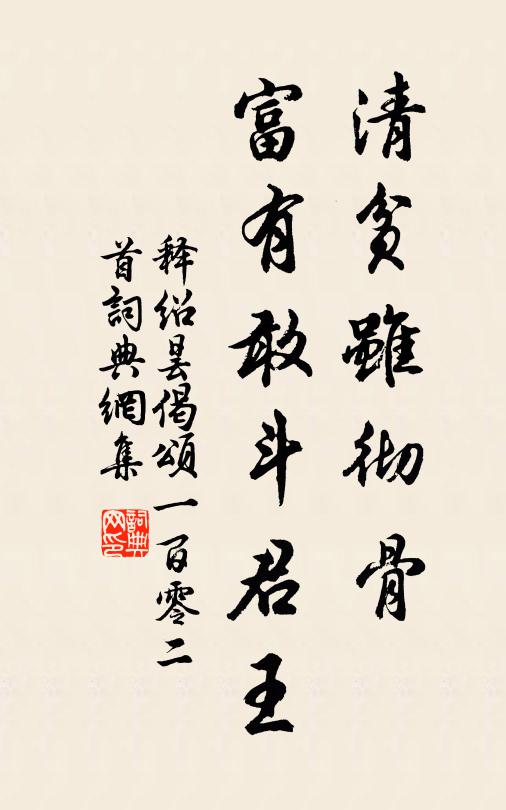 清貧雖彻骨
富有敢斗君王
释绍昙偈頌一百零二
首詞典網集
詞典
网印